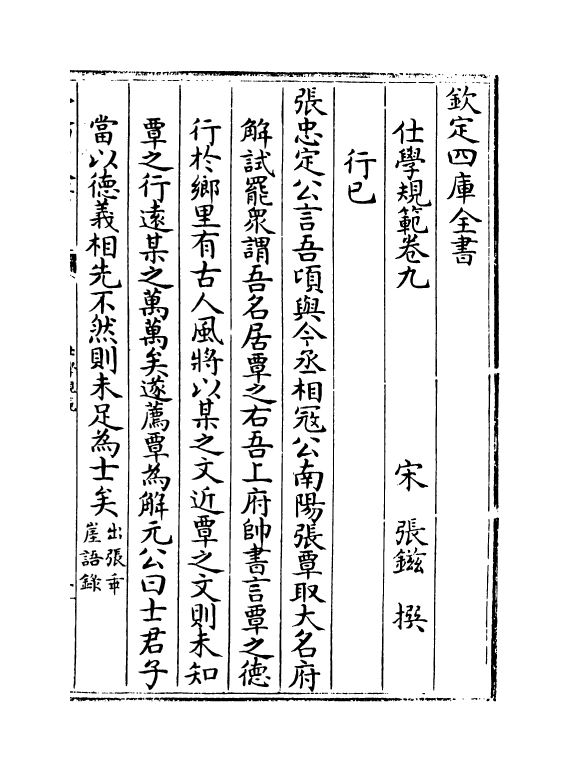 欽定四庫全書
仕學規範卷九
宋 張鎡 撰
行已
張忠定公言吾頃與今丞相冦公南陽張覃取大名府
解試罷衆謂吾名居覃之右吾上府帥書言覃之德
行於鄉里有古人風將以某之文近覃之文則未知
覃之行遠某之萬萬矣遂薦覃為解元公曰士君子
當以德義相先不然則未足為士矣出張乖
崖語錄